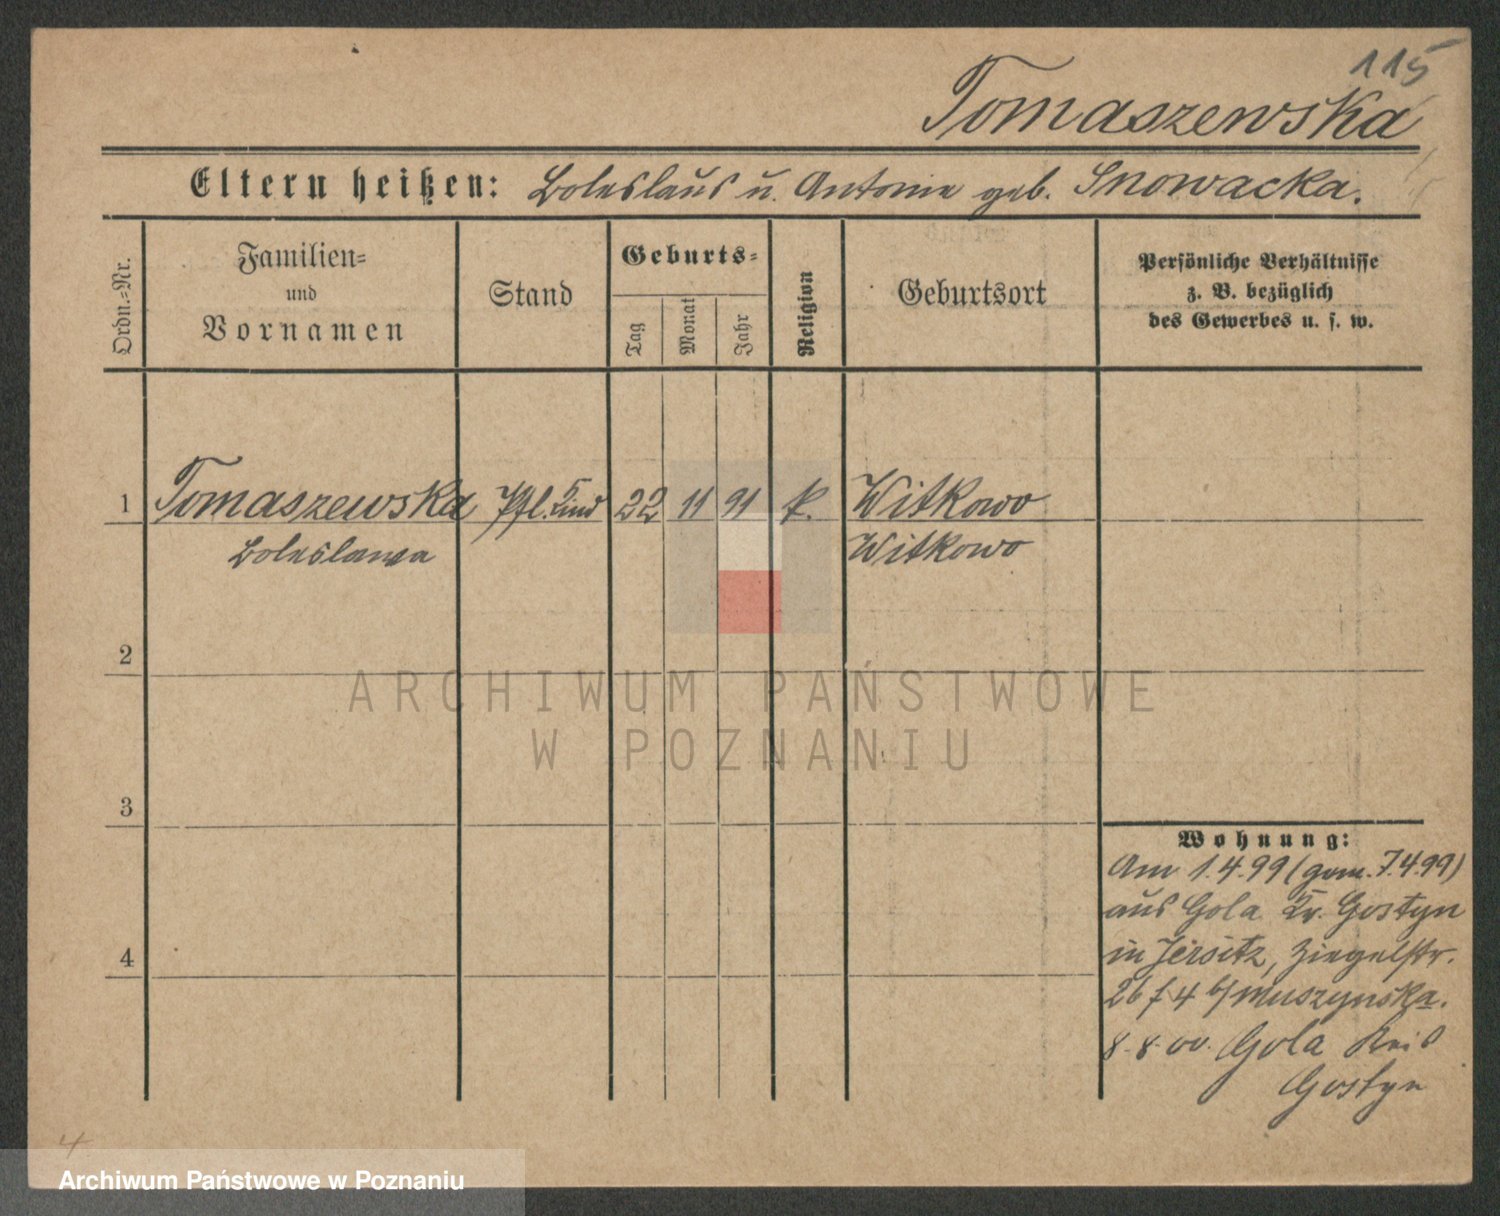 115
Tomaszewska
Eltern heißen: Boleslaus u. Antonie geb. Snowacka.
Ordn.-Nr.
Familien-
und
Vornamen
Stand
Geburts-
Tag
Monat
Jahr
Religion
Geburtsort
Persönliche Verhältnisse
z. B. bezüglich
des Gewerbes u. s. w.
1 Tomaszewska Pfl. Kind 22 11 91 k. Witkowo
Boleslawa Witkowo
2
ARCHIWUM PAŃSTWOWE
W POZNANIU
3
Wohnung:
Am 1.4.99 (gem. 7.4.99)
aus Gola Kr. Gostyn
in Jersitz, Ziegelstr.
4
26 f 4 b/ Muszynska.
8.8.00. Gola Kreis
Gostyn
4
Archiwum Państwowe w Poznaniu